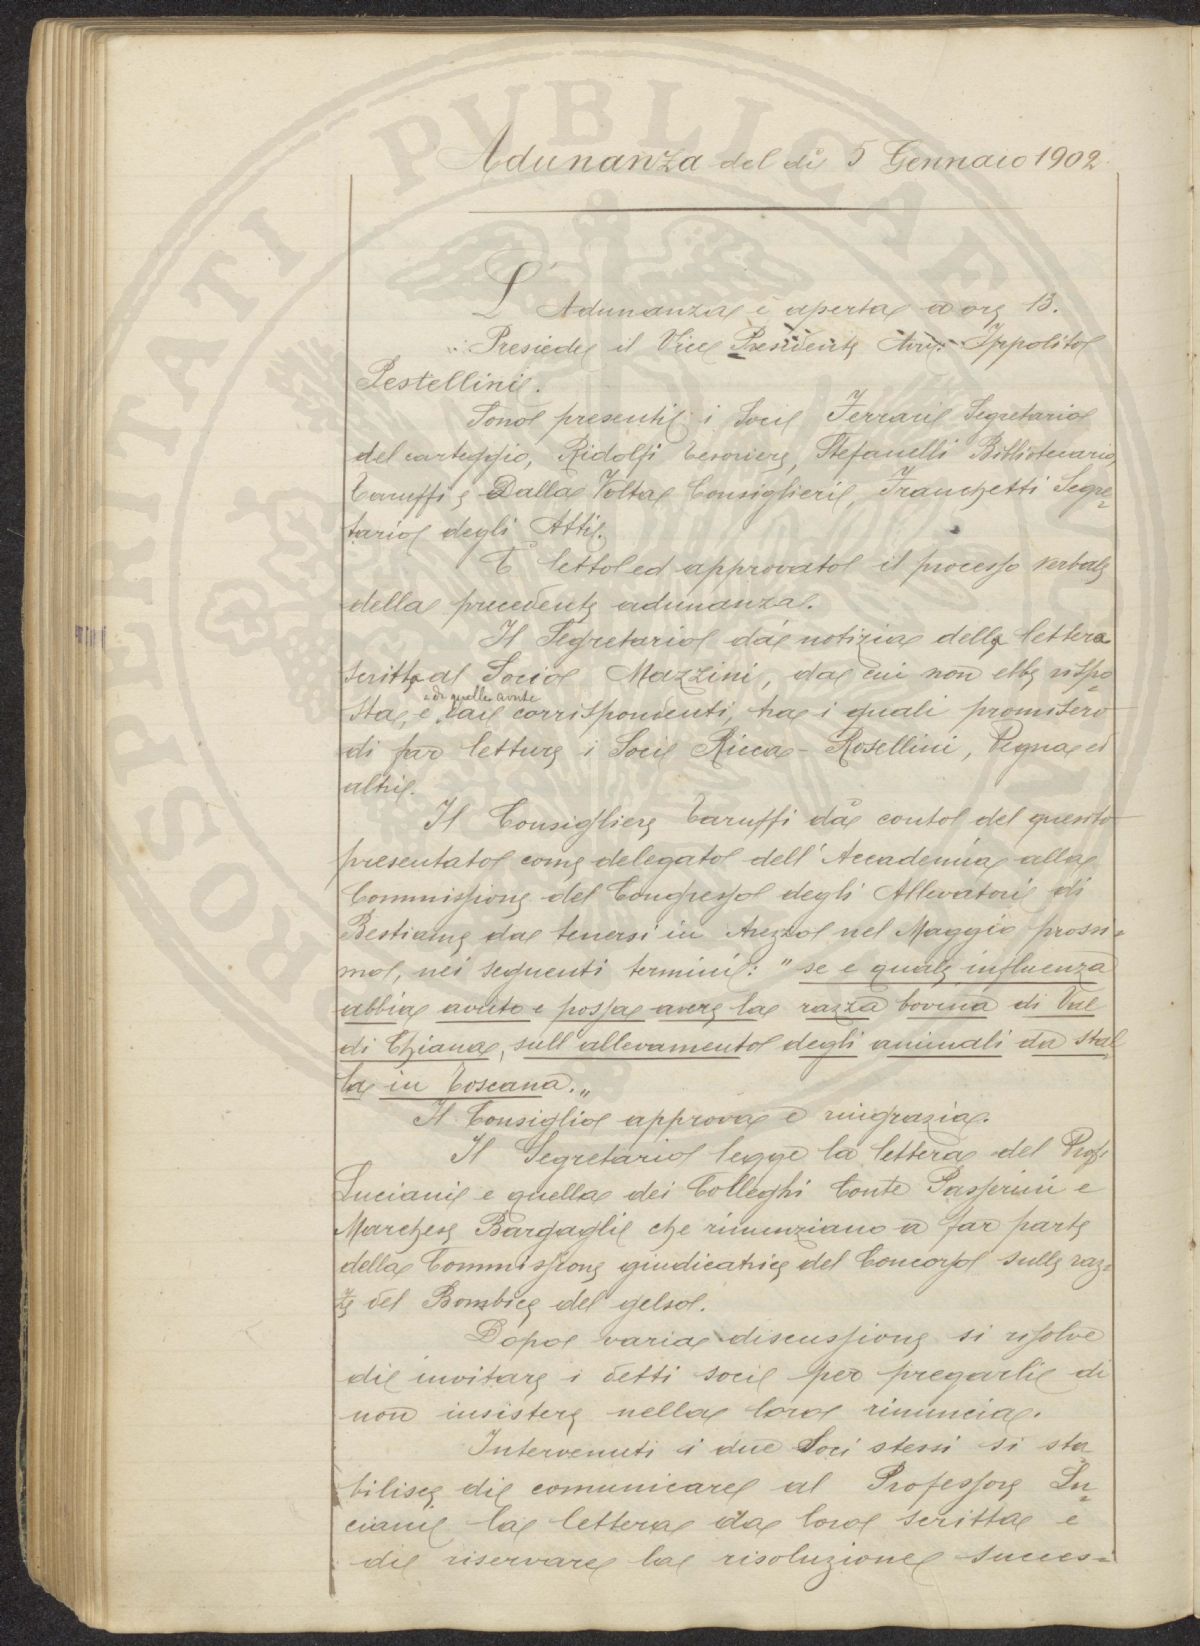 Adunanza del dì 5 Gennaio 1902
L'Adunanza è aperta a ore 13.
Presiede il Vice Presidente Avv. Ippolito
Pestellini.
Sono presenti i Soci Ferrari Segretario
del carteggio, Ridolfi Tesoriere, Stefanelli Bibliotecario,
Caruffi e Dalla Volta Consiglieri, Franchetti Segre=
tario degli Atti.
È letto ed approvato il processo verbale
della precedente adunanza.
Il Segretario dà notizia delle lettere
scritte al Socio Mazzini, da cui non ebbe rispo=
sta, e ai corrispondenti, tra i quali promisero
e di quelle avute
di far letture i Soci Ricca-Rosellini, Pegna ed
altri.
Il Consigliere Caruffi dà conto del quesito
presentato come delegato dell'Accademia alla
Commissione del Congresso degli Allevatori di
Bestiame da tenersi in Arezzo nel Maggio prossi=
mo, nei seguenti termini: "se e quale influenza
abbia avuto e possa avere la razza bovina di Val
di Chiana, sull'allevamento degli animali da stal=
la in Toscana."
Il Consiglio approva e ringrazia.
Il Segretario legge la lettera del Prof.
Luciani e quella dei Colleghi Conte Passerini e
Marchese Bargagli che rinunziano a far parte
della Commissione giudicatrice del Concorso sulle raz=
ze del Bombice del gelso.
Dopo varia discussione si risolve
di invitare i detti soci per pregarli di
non insistere nella loro rinuncia.
Intervenuti i due Soci stessi si sta
bilisce di comunicare al Professore Lu=
ciani la lettera da loro scritta e
di riservare la risoluzione succes=